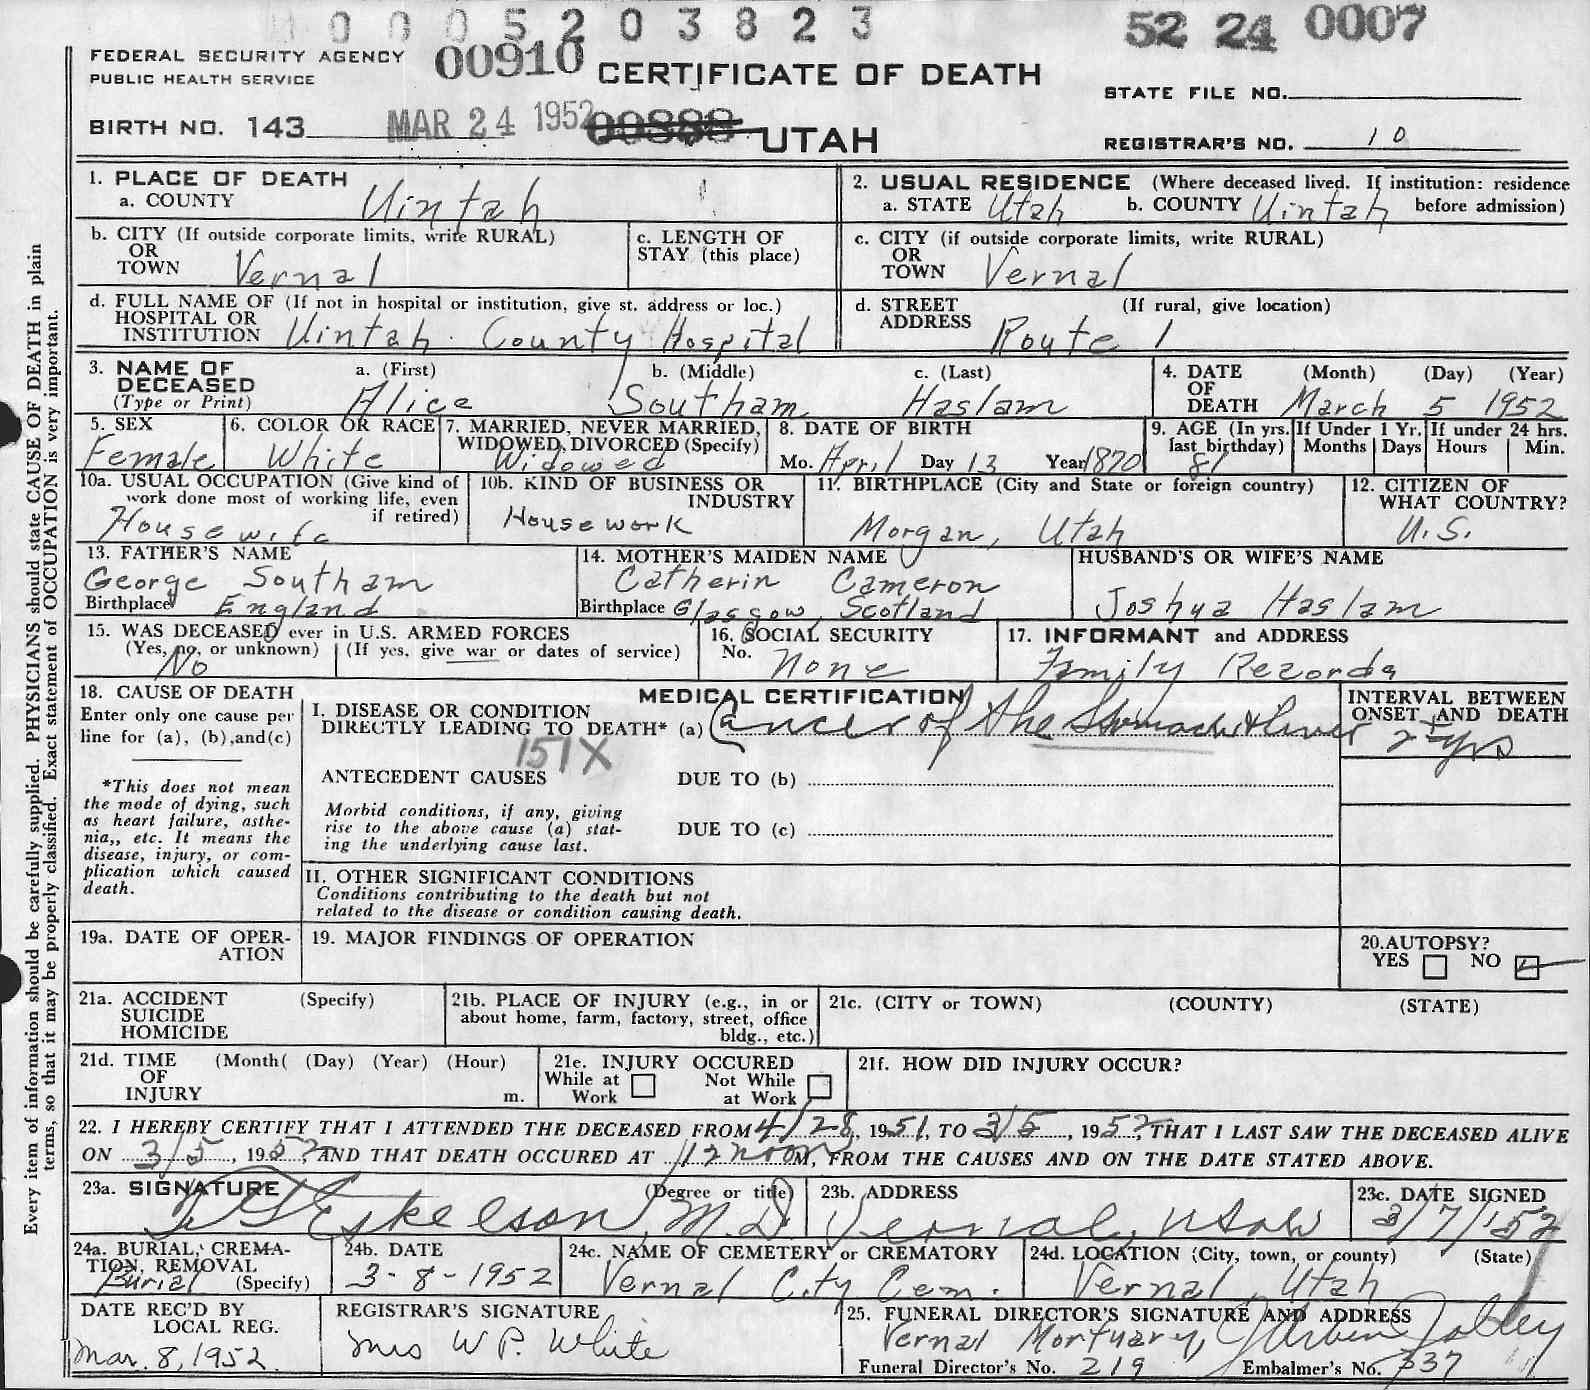 0 0 0 5 2 0 3 8 2 3
52 24 0007
FEDERAL SECURITY AGENCY
PUBLIC HEALTH SERVICE
00910
CERTIFICATE OF DEATH
STATE FILE NO.
BIRTH NO. 143
MAR 24 1952
00888
UTAH
REGISTRAR'S NO. 10
Every item of information should be carefully supplied. PHYSICIANS should state CAUSE OF DEATH in plain
terms, so that it may be properly classified. Exact statement of OCCUPATION is very important.
1. PLACE OF DEATH
a. COUNTY Uintah
2. USUAL RESIDENCE (Where deceased lived. If institution: residence
a. STATE Utah b. COUNTY Uintah before admission)
b. CITY (If outside corporate limits, write RURAL)
OR
TOWN Vernal
c. LENGTH OF
STAY (this place)
c. CITY (if outside corporate limits, write RURAL)
OR
TOWN Vernal
d. FULL NAME OF (If not in hospital or institution, give st. address or loc.)
HOSPITAL OR
INSTITUTION Uintah County Hospital
d. STREET (If rural, give location)
ADDRESS Route 1
3. NAME OF
DECEASED
(Type or Print)
a. (First) b. (Middle) c. (Last)
Alice Southam Haslam
4. DATE (Month) (Day) (Year)
OF
DEATH March 5 1952
5. SEX
Female
6. COLOR OR RACE
White
7. MARRIED, NEVER MARRIED,
WIDOWED, DIVORCED (Specify)
Widowed
8. DATE OF BIRTH
Mo. April Day 13 Year 1870
9. AGE (In yrs.
last birthday)
81
If Under 1 Yr.
Months Days
If under 24 hrs.
Hours Min.
10a. USUAL OCCUPATION (Give kind of
work done most of working life, even
if retired)
Housewife
10b. KIND OF BUSINESS OR
INDUSTRY
Housework
11. BIRTHPLACE (City and State or foreign country)
Morgan, Utah
12. CITIZEN OF
WHAT COUNTRY?
U.S.
13. FATHER'S NAME
George Southam
Birthplace England
14. MOTHER'S MAIDEN NAME
Catherin Cameron
Birthplace Glasgow, Scotland
HUSBAND'S OR WIFE'S NAME
Joshua Haslam
15. WAS DECEASED ever in U.S. ARMED FORCES
(Yes, no, or unknown) (If yes, give war or dates of service)
No
16. SOCIAL SECURITY
No. none
17. INFORMANT and ADDRESS
Family Records
18. CAUSE OF DEATH
Enter only one cause per
line for (a), (b),and(c)
*This does not mean
the mode of dying, such
as heart failure, asthe-
nia,, etc. It means the
disease, injury, or com-
plication which caused
death.
MEDICAL CERTIFICATION
I. DISEASE OR CONDITION
DIRECTLY LEADING TO DEATH* (a) Cancer of the Stomach & liver
151X
INTERVAL BETWEEN
ONSET AND DEATH
2 ± yrs
ANTECEDENT CAUSES
DUE TO (b)
Morbid conditions, if any, giving
rise to the above cause (a) stat-
ing the underlying cause last.
DUE TO (c)
II. OTHER SIGNIFICANT CONDITIONS
Conditions contributing to the death but not
related to the disease or condition causing death.
19a. DATE OF OPER-
ATION
19. MAJOR FINDINGS OF OPERATION
20.AUTOPSY?
YES NO
21a. ACCIDENT (Specify)
SUICIDE
HOMICIDE
21b. PLACE OF INJURY (e.g., in or
about home, farm, factory, street, office
bldg., etc.)
21c. (CITY or TOWN) (COUNTY) (STATE)
21d. TIME (Month( (Day) (Year) (Hour)
OF
INJURY m.
21e. INJURY OCCURED
While at Not While
Work at Work
21f. HOW DID INJURY OCCUR?
22. I HEREBY CERTIFY THAT I ATTENDED THE DECEASED FROM 4/28, 1951, TO 3/5, 1952, THAT I LAST SAW THE DECEASED ALIVE
ON 3/5, 1952, AND THAT DEATH OCCURED AT 12 noon M, FROM THE CAUSES AND ON THE DATE STATED ABOVE.
23a. SIGNATURE (Degree or title)
Eskelson, M.D.
23b. ADDRESS
Vernal, Utah
23c. DATE SIGNED
3/7/52
24a. BURIAL, CREMA-
TION, REMOVAL
Burial (Specify)
24b. DATE
3-8-1952
24c. NAME OF CEMETERY or CREMATORY
Vernal City Cem.
24d. LOCATION (City, town, or county) (State)
Vernal, Utah
DATE REC'D BY
LOCAL REG.
Mar. 8, 1952
REGISTRAR'S SIGNATURE
Mrs W P. White
25. FUNERAL DIRECTOR'S SIGNATURE AND ADDRESS
Vernal Mortuary, Jolley
Funeral Director's No. 219 Embalmer's No. 337